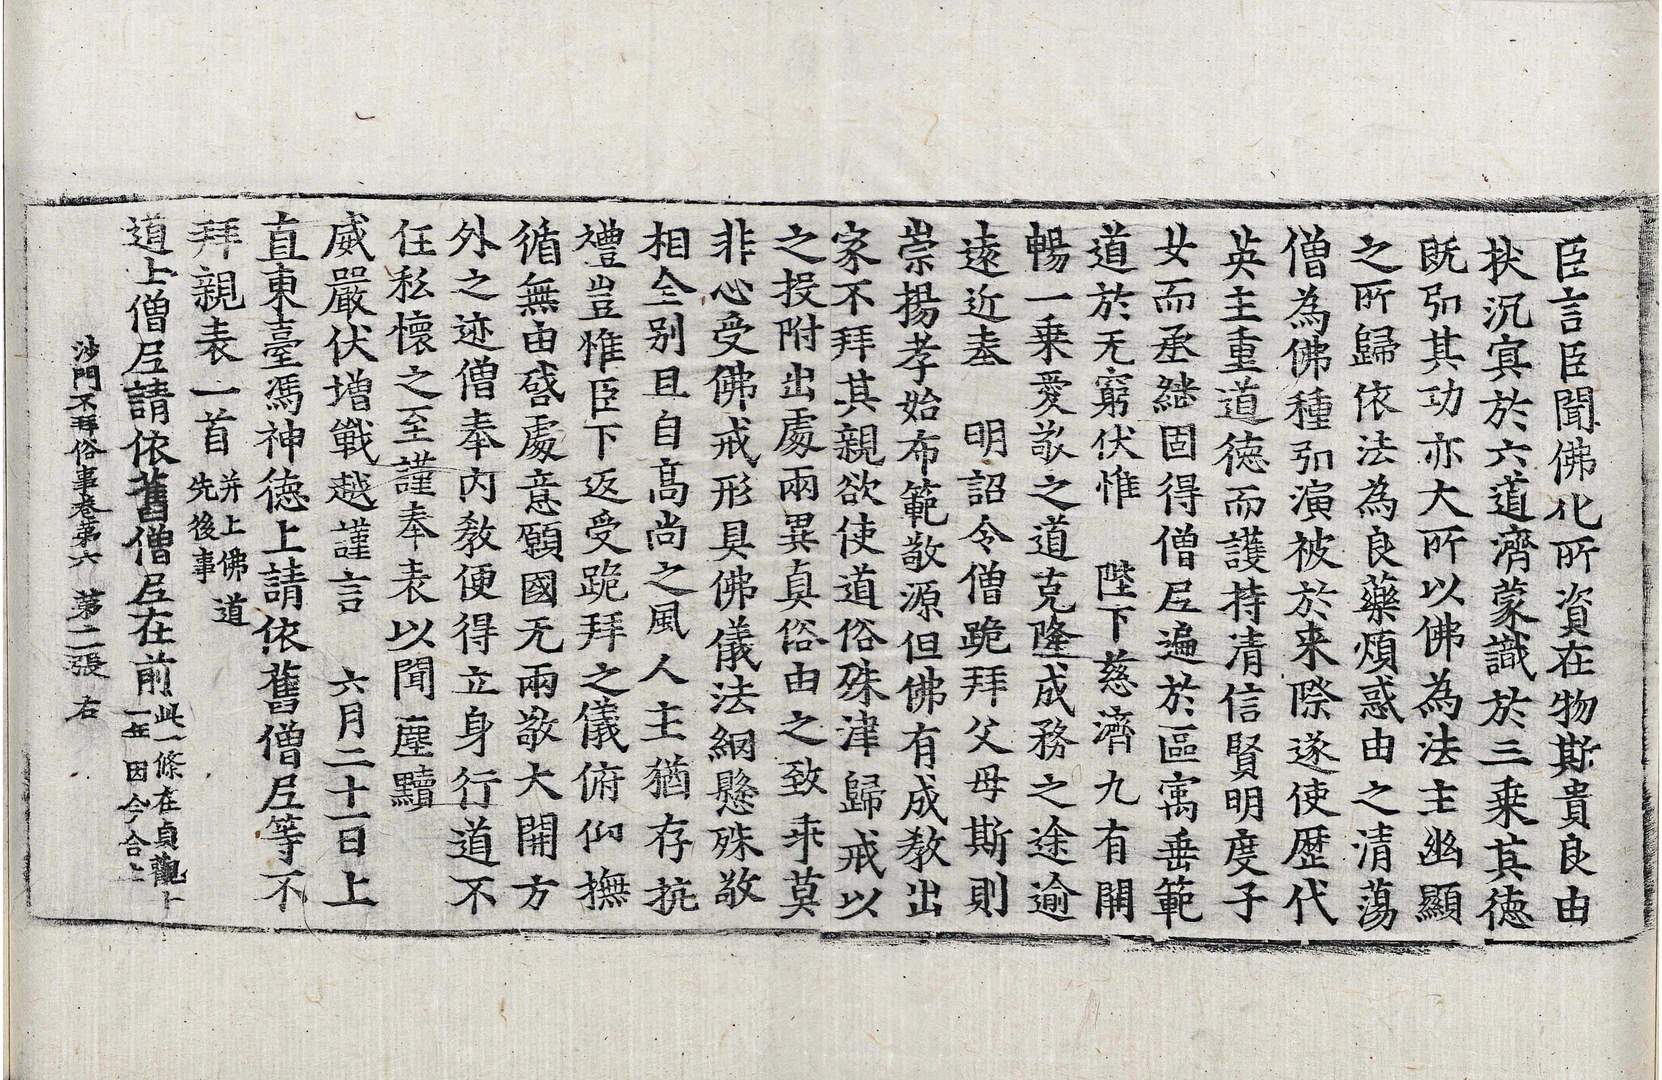 臣言臣聞佛化所資在物斯貴良由
拔沉冥於六道濟蒙識於三乗其德
既弘其功亦大所以佛為法主幽顯
之所歸依法為良藥煩惑由之清蕩
僧為佛種弘演被於来際遂使歷代
英主重道德而護持清信賢明度子
女而承繼固得僧尼遍於區寓垂範
道於无窮伏惟　陛下慈濟九有開
暢一乗愛敬之道克隆成務之途逾
遠近奉　明詔令僧跪拜父母斯則
崇揚孝始布範敬源但佛有成教出
家不拜其親欲使道俗殊津歸戒以
之投附出處兩異真俗由之致乖莫
非心受佛戒形具佛儀法網懸殊敬
相全別且自高尚之風人主猶存抗
禮豈惟臣下返受跪拜之儀俯仰撫
循無由啓處意願國无兩敬大開方
外之迹僧奉內教便得立身行道不
任私懷之至謹奉表以聞塵黷
威嚴伏增戰越謹言　六月二十一日上
直東臺馮神德上請依舊僧尼等不
拜親表一首 并上佛道先後事
道士僧尼請依舊僧尼在前 此一條在貞觀十一年因今合上
沙門不拜俗事卷第六　第二張　右